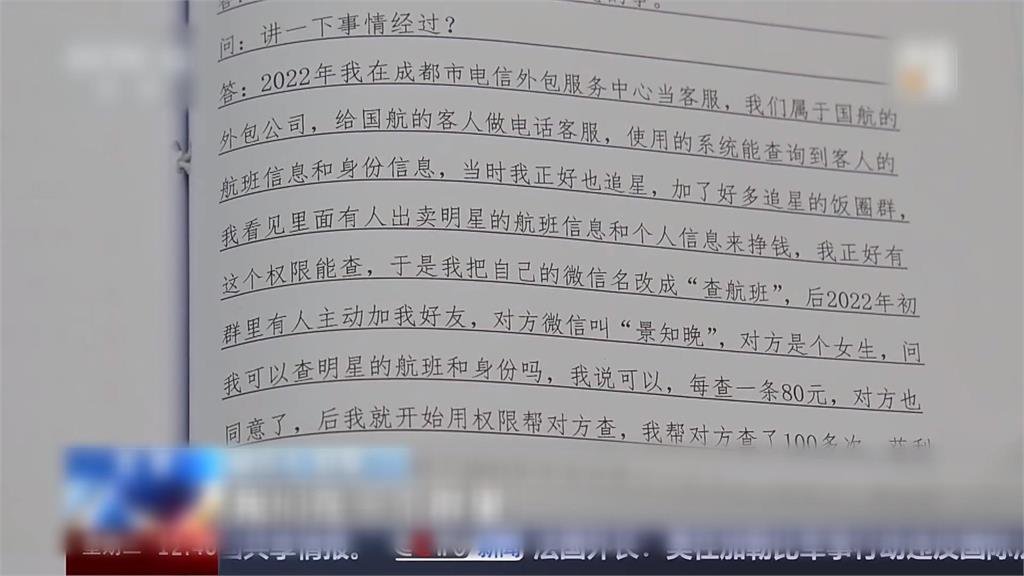 问：讲一下事情经过？
答：2022年我在成都市电信外包服务中心当客服，我们属于国航的
外包公司，给国航的客人做电话客服，使用的系统能查询到客人的
航班信息和身份信息，当时我正好也追星，加了好多追星的饭圈群，
我看见里面有人出卖明星的航班信息和个人信息来挣钱，我正好有
这个权限能查，于是我把自己的微信名改成“查航班”，后2022年初
群里有人主动加我好友，对方微信叫“景知晚”，对方是个女生，问
我可以查明星的航班和身份吗，我说可以，每查一条80元，对方也
同意了，后我就开始用权限帮对方查，我帮对方查了100多次
新闻 法国外长：美在加勒比军事行动违反国际法